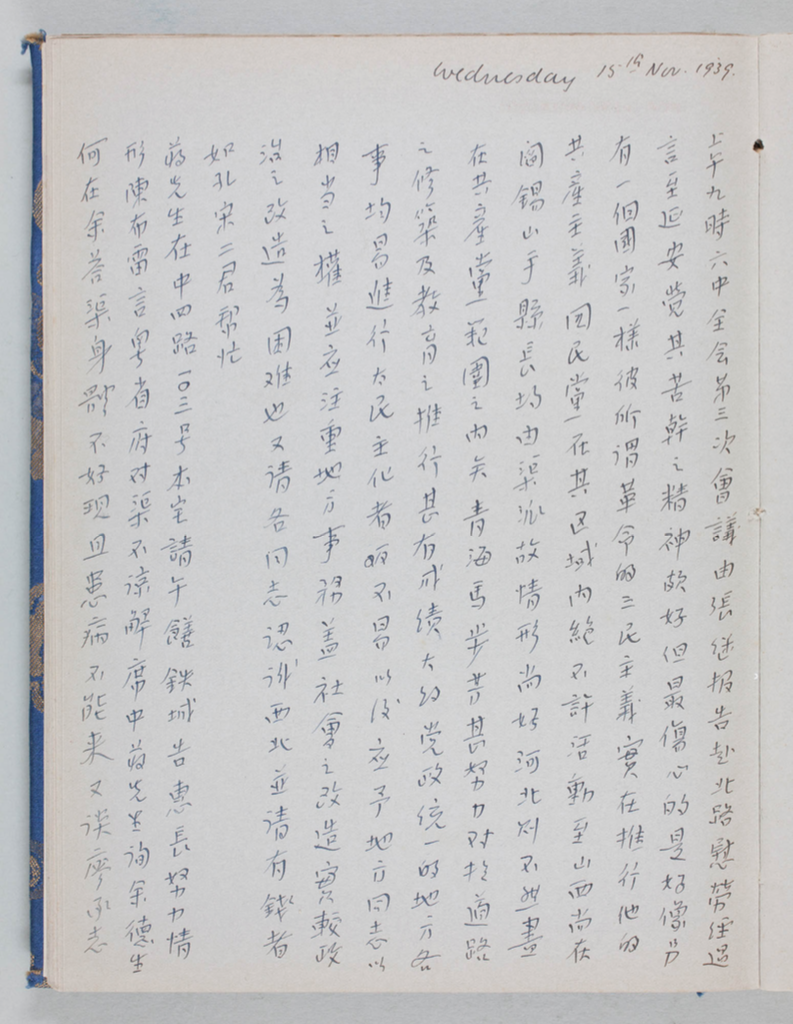 Wednesday 15th Nov. 1939.
上午九時六中全会第三次會議由張继报告赴北路慰勞經過
言至延安覺其苦幹之精神頗好但最傷心的是好像另
有一個國家一樣彼所谓革命的三民主義實在推行他的
共產主義囯民黨在其区域内絕不許活動至山西尚在
阎錫山手縣長均由渠派故情形尚好河北則不然盡
在共產黨範圍之内矣青海馬步芳甚努力对於道路
之修築及教育之推行甚有成績大约党政统一的地方各
事均易進行太民主化者反不易以後应予地方同志以
相当之權並应注重地方事務盖社會之改造實較政
治之改造為困难也又请各同志認识西北並请有錢者
如孔宋二君帮忙
蔣先生在中四路一〇三号本宅請午饍鉄城告惠長努力情
形陳布雷言粤省府对渠不諒解席中蔣先生詢余德生
何在余荅渠身體不好現且患病不能来又谈廖承志